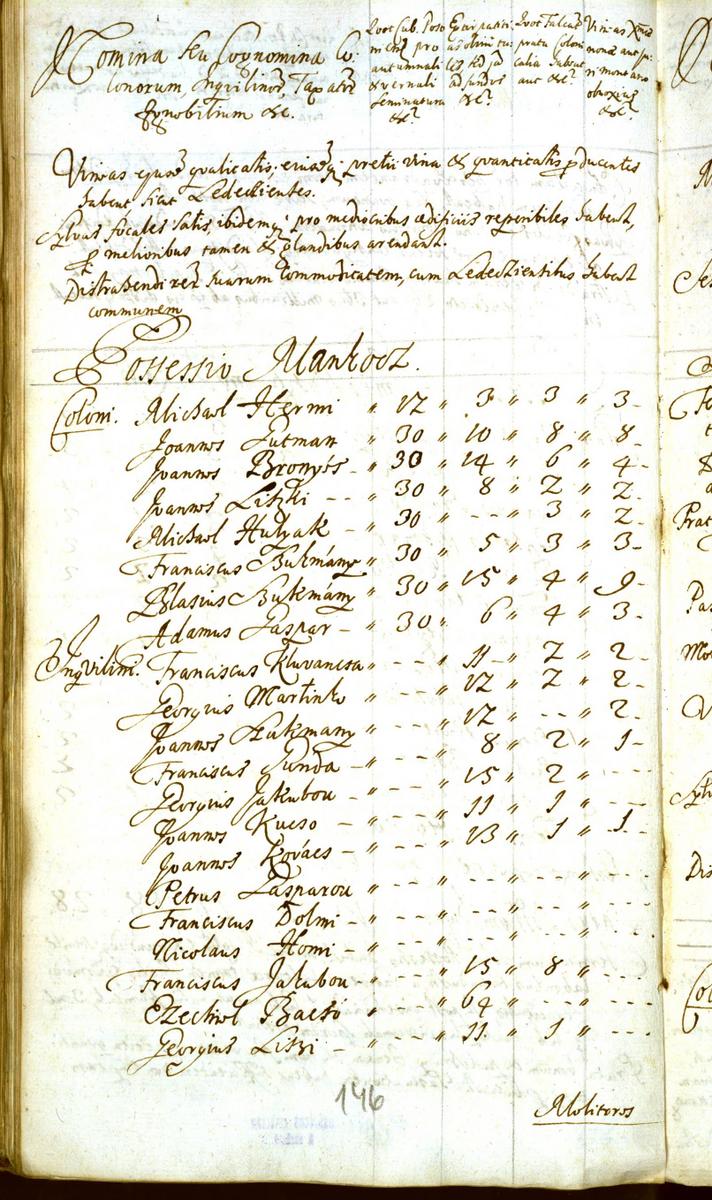 Nomina seu Cognomina Co:
lonorum Inquilinor, Taxatu
Ignobilium &c.
Quot Cub. Poso
niens pro
autumnali
& vernali
seminatura
&c?
Quot Falcat
prata Coloni
Vineas
nonæ aut
obnoxius
&c?
Vineas ejusq qualitatis, ejusq pretii vina & quantitatis producentes
habent sicut Ledeczienses.
Sylvas focales satis, ibidemq pro mediocribus ædificiis reperibiles habent,
melioribus tamen & glandibus arendant.
Distrahendi rer suarum Commoditatem, cum Ledecziensibus habent
communem
Possessio Mankocz.
Coloni. Michael Hermi " 12 " 3 " 3 " 3 -
Joannes Gutman " 30 " 10 " 8 " 8 -
Joannes Bronyós - " 30 " 14 " 6 " 4 -
Joannes Liszki - - " 30 " 8 " 2 " 2 -
Michael Hulyak - " 30 " - - " 3 " 2 -
Franciscus Bukmány " 30 " 5 " 3 " 3 -
Blasius Bukmány " 30 " 15 " 4 " 9 -
Adamus Gaspar - " 30 " 6 " 4 " 3 -
Inqvilini. Franciscus Kluvancsa " - - " 11 - " 2 " 2 -
Georgius Martinko " - - " 12 " 2 " 2 -
Joannes Bukmany " - - " 12 " - - " 2 -
Franciscus Junda " - - " 8 " 2 " 1 -
Georgius Jakubou " - - " 15 " 2 " - - -
Joannes Kucso - " - - " 11 " 1 " - - -
Joannes Kovács - " - - " 13 " 1 " 1 -
Petrus Gasparou " - - " - - " - - " - - -
Franciscus Dolmi - " - - " - - " - - " - - -
Nicolaus Homi - " - - " - - " - - " - - -
Franciscus Jakubou " - - " 15 " 8 " - - -
Ezechiel Bactó " - - " 64 " - - " - - -
Georgius Liszi - " - - " 11 " 1 " - - -
146
Molitores